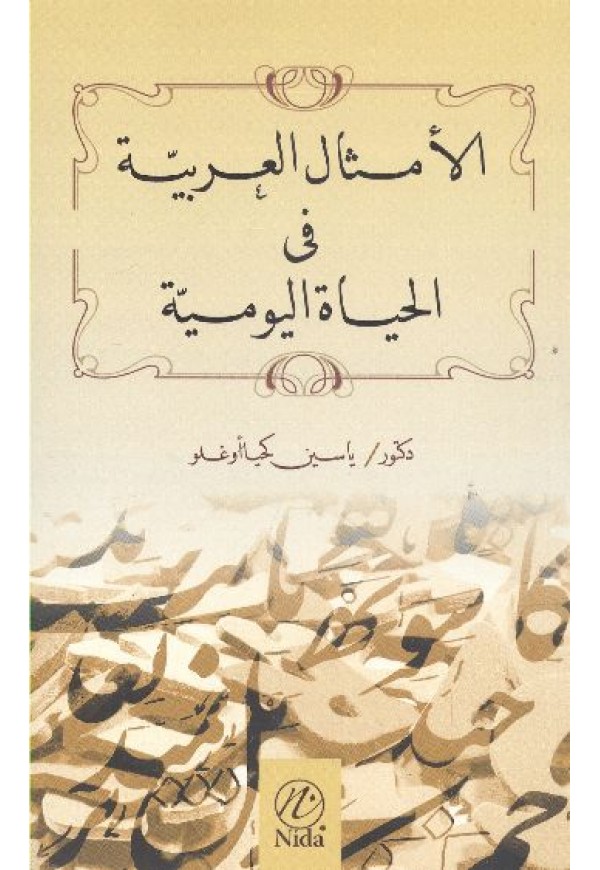 الأمثال العربيّة
فى
الحياة اليوميّة
دكتور / ياسين كحياأوغلو
n
Nida